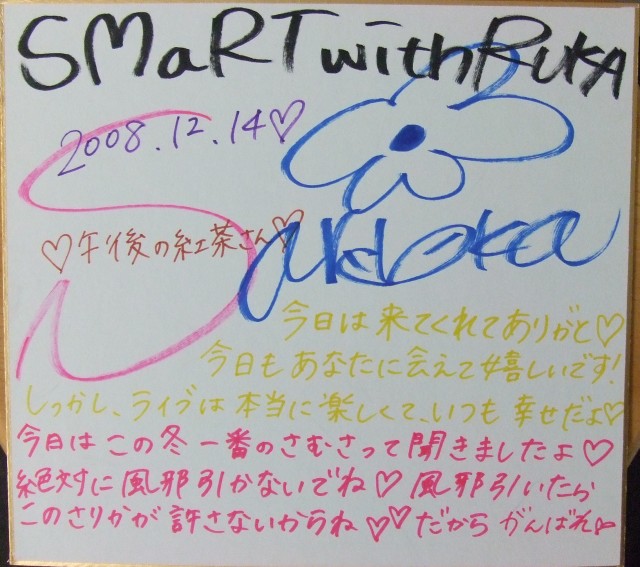 SMaRT with RUKA
2008.12.14♡
♡午後の紅茶さん♡
今日は来てくれてありがと♡
今日もあなたに会えて嬉しいです!
しっかし、ライブは本当に楽しくて、いつも幸せだよ♡
今日はこの冬一番のさむさって聞きましたよ♡
絶対に風邪引かないでね♡風邪引いたら
このさりかが許さないからね♡♡だからがんばれ♡